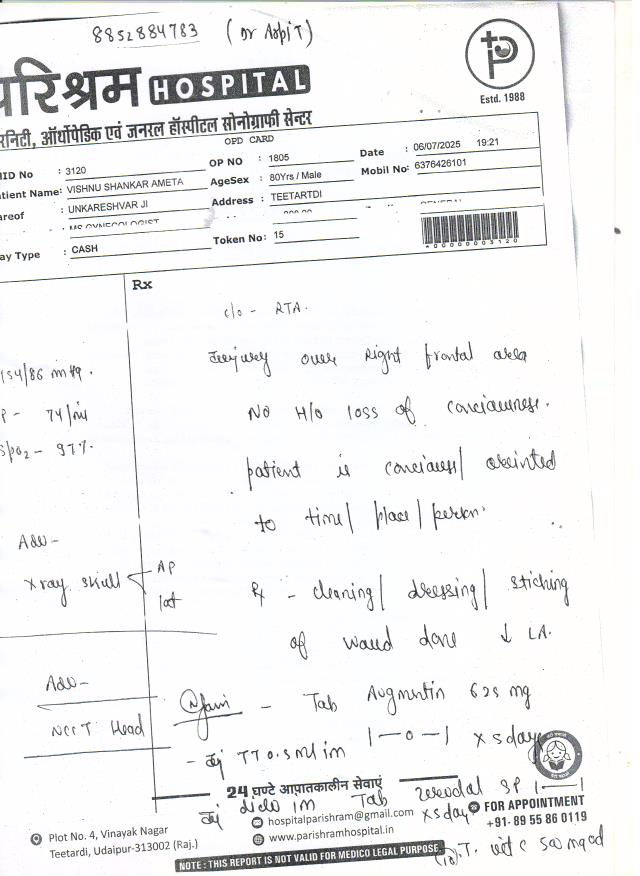 8852884783 (Dr Arpit)
परिश्रम HOSPITAL
Estd. 1988
र्निटी, ऑर्थोपेडिक एवं जनरल हॉस्पीटल सोनोग्राफी सेन्टर
OPD CARD
ID No : 3120 OP NO : 1805 Date : 06/07/2025 19:21
atient Name: VISHNU SHANKAR AMETA AgeSex : 80Yrs / Male Mobil No: 6376426101
areof : UNKARESHVAR JI Address : TEETARTDI
: MS GYNECOLOGIST GENERAL
ay Type : CASH Token No: 15
*000000003120
Rx
c/o - RTA.
injury over right frontal area
154/86 mHg.
No H/o loss of conciousness.
P - 74/mi
SpO2 - 97%
patient is conciuess/ orinted
to time/ place/ person.
Adv -
xray skull AP
lat
Rx - cleaning/ dressing/ stiching
of waud done ↓ LA.
Adv -
NCCT Head
- Tab Augmentin 625 mg
1-0-1 x 5 day
- inj TT 0.5 ml im
24 घण्टे आपातकालीन सेवाएं
inj diclo im Tab zerodol SP 1-1
x 5 day
hospitalparishram@gmail.com
www.parishramhospital.in
FOR APPOINTMENT
+91- 89 55 86 0119
Plot No. 4, Vinayak Nagar
Teetardi, Udaipur-313002 (Raj.)
T. vit c 500 mg od
NOTE : THIS REPORT IS NOT VALID FOR MEDICO LEGAL PURPOSE